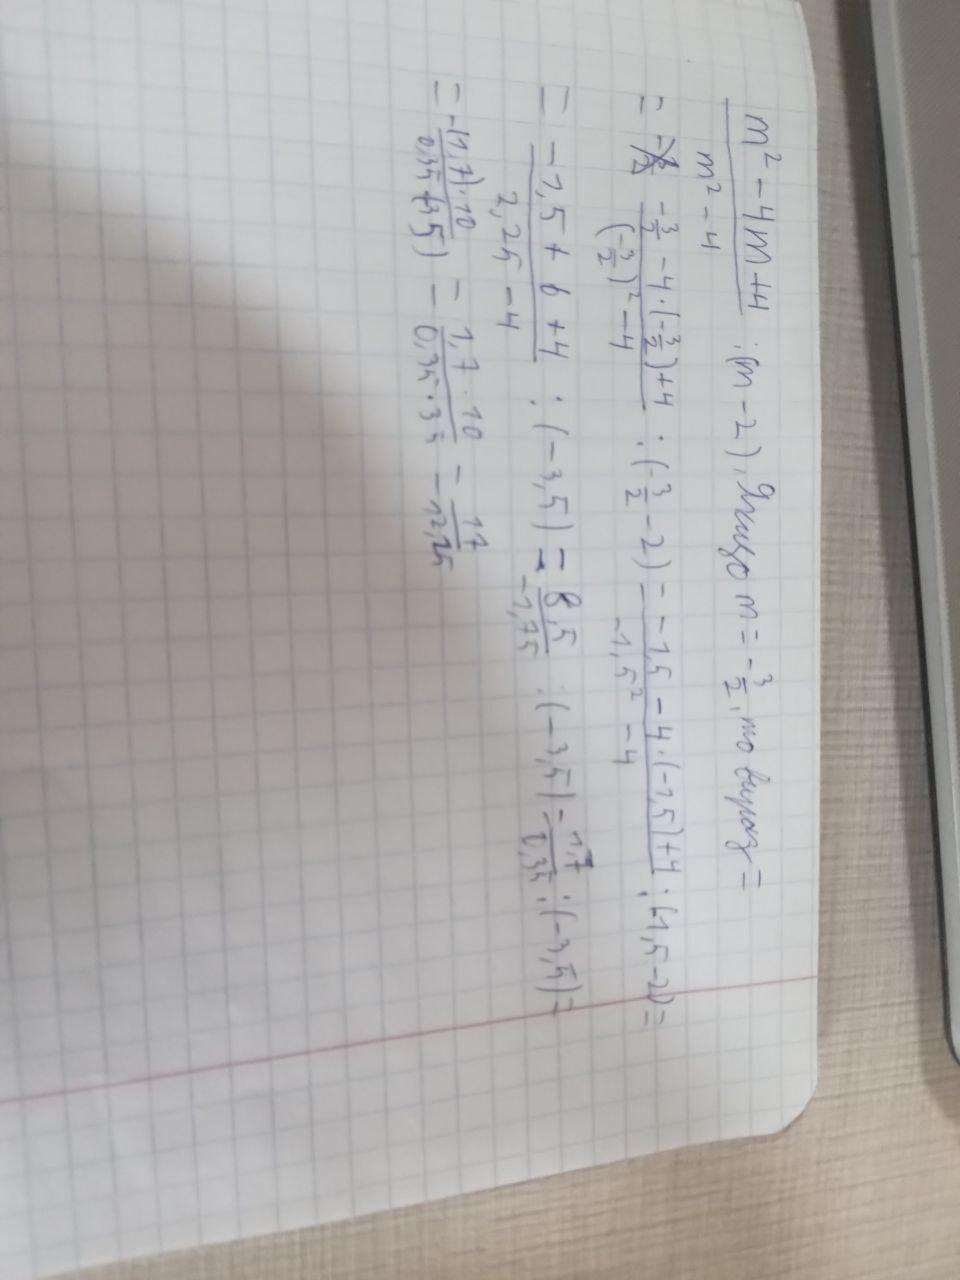 m² - 4m + 4 / m² - 4 : (m - 2), Якщо m = -3/2, то вираз =
= -3/2 - 4 · (-3/2) + 4 / (-3/2)² - 4 : (-3/2 - 2) = -1,5 - 4 · (-1,5) + 4 / -1,5² - 4 : (-1,5 - 2) =
= -1,5 + 6 + 4 / 2,25 - 4 : (-3,5) = 8,5 / -1,75 : (-3,5) = 1,7 / 0,35 : (-3,5) =
= -(1,7) · 10 / 0,35 · (35) = 1,7 · 10 / 0,35 · 35 = 17 / 12,25